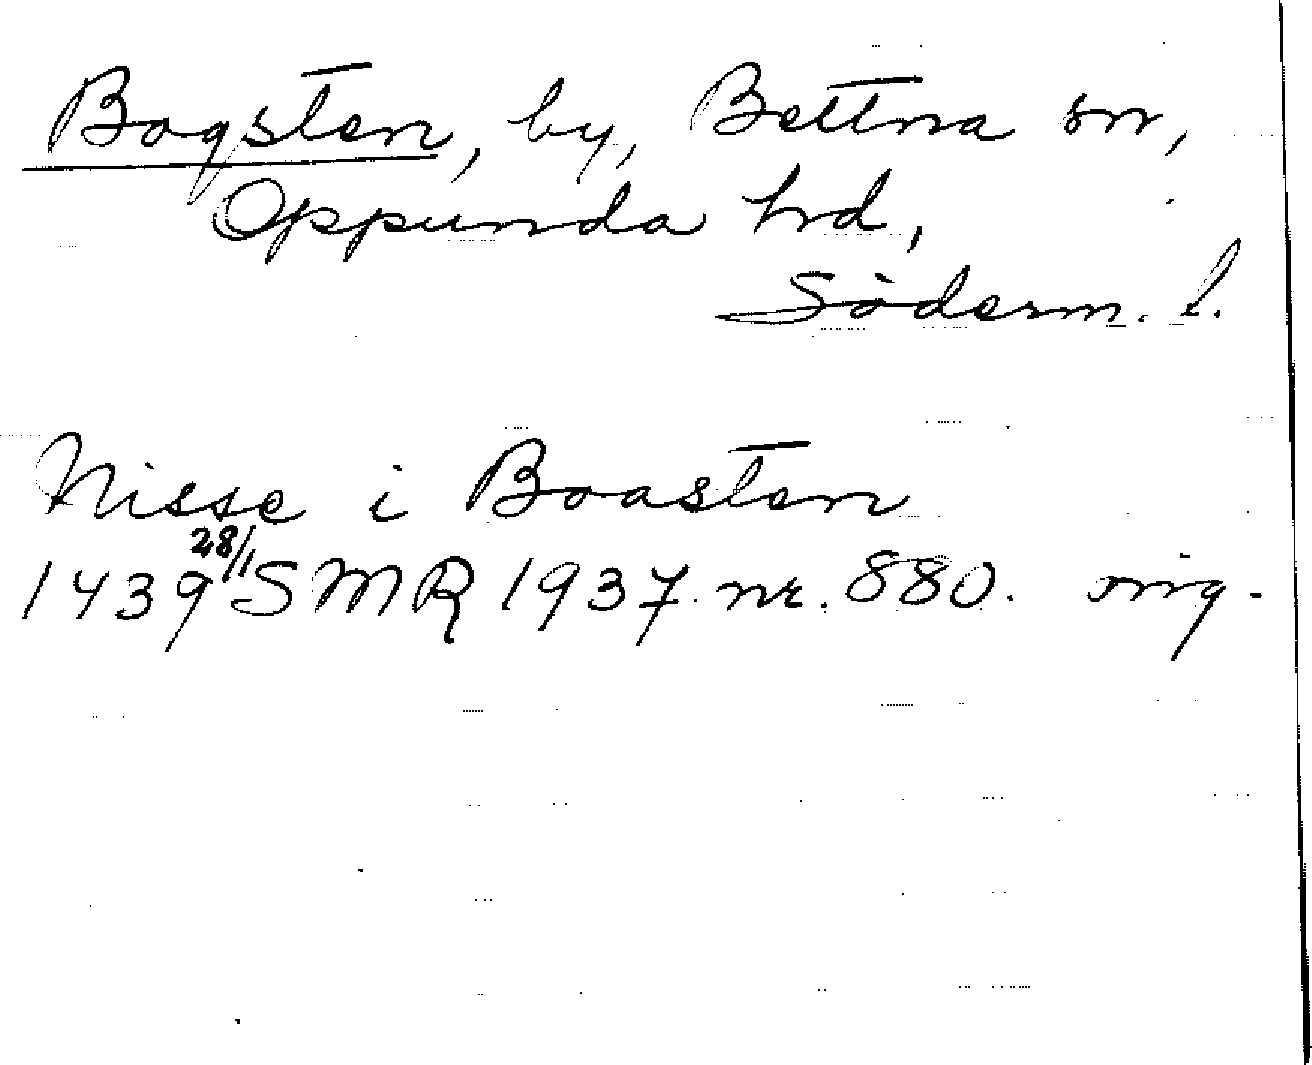 Bogsten, by, Bettna sn,
Oppunda hrd,
Söderm. l.
Nisse i Boasten
1439 28/1 SMR 1937 nr. 880. orig.